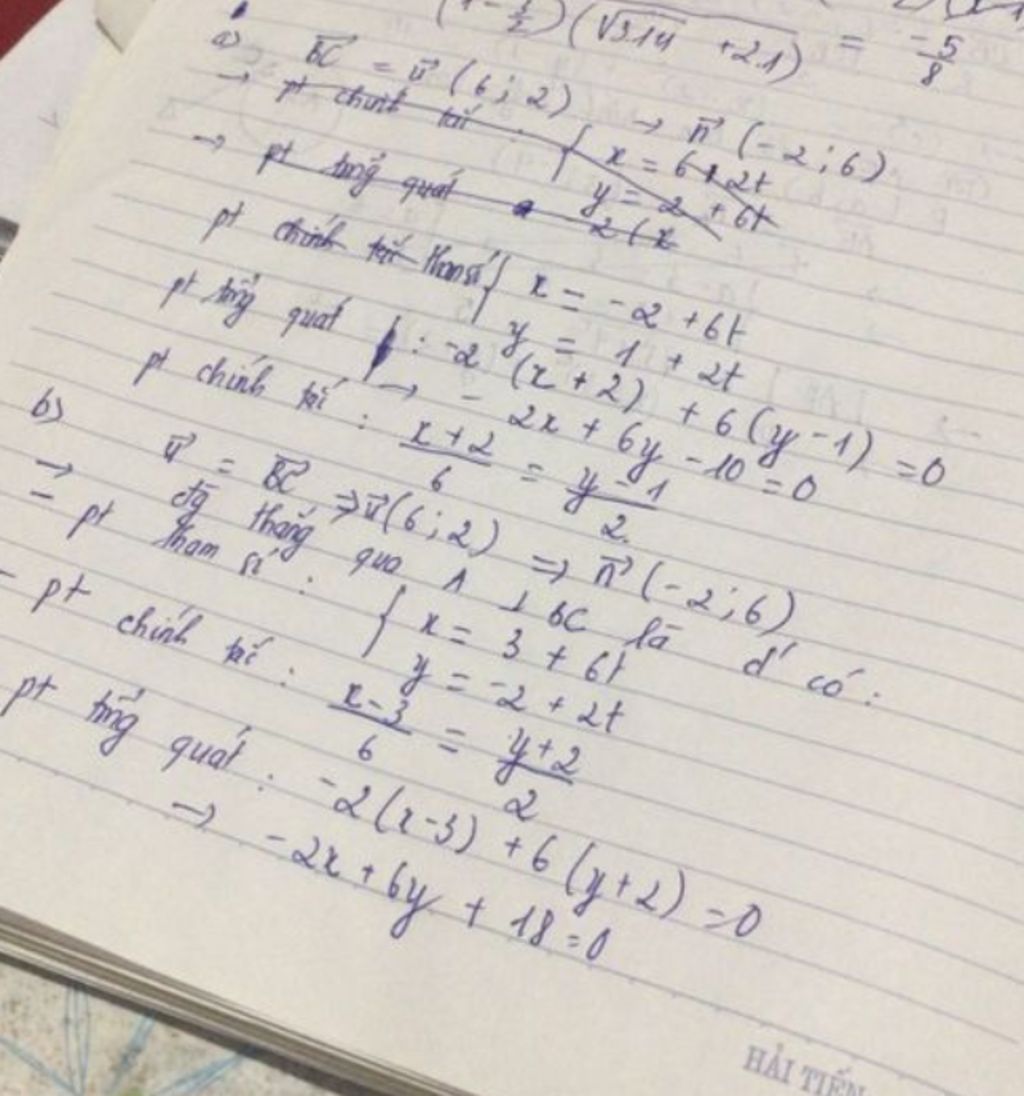 (1 - 1/2)(√3.14 + 2.1) = -5/8
a) BC→ = u→ (6 ; 2) → n→ (-2 ; 6)
→ pt chính tắc : { x = 6 + 2t
y = 2 + 6t
→ pt tổng quát 2(x
pt chính tắc tham số { x = -2 + 6t
y = 1 + 2t
pt tổng quát : -2 (x + 2) + 6(y - 1) = 0
→ - 2x + 6y - 10 = 0
pt chính tắc : x+2/6 = y-1/2
b) u→ = BC→ ⇒ u→ (6 ; 2) ⇒ n→ (-2 ; 6)
→ đg thẳng qua A ⊥ BC là d' có :
- pt tham số : { x = 3 + 6t
y = -2 + 2t
- pt chính tắc : x-3/6 = y+2/2
pt tổng quát : -2(x-3) + 6(y+2) = 0
→ -2x + 6y + 18 = 0
HẢI TIẾN